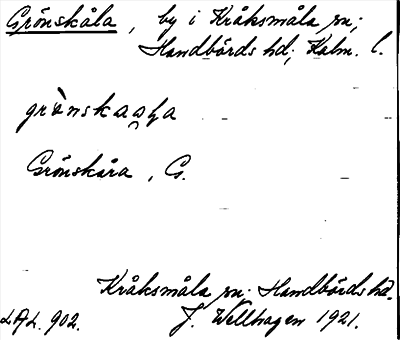 Grönskåla, by i Kråksmåla sn;
Handbörds hd; Kalm. l.
grònskaaꞎa
Grönskåra, G.
Kråksmåla sn. Handbörds hd.
LAL. 902. J. Wellhagen 1921.